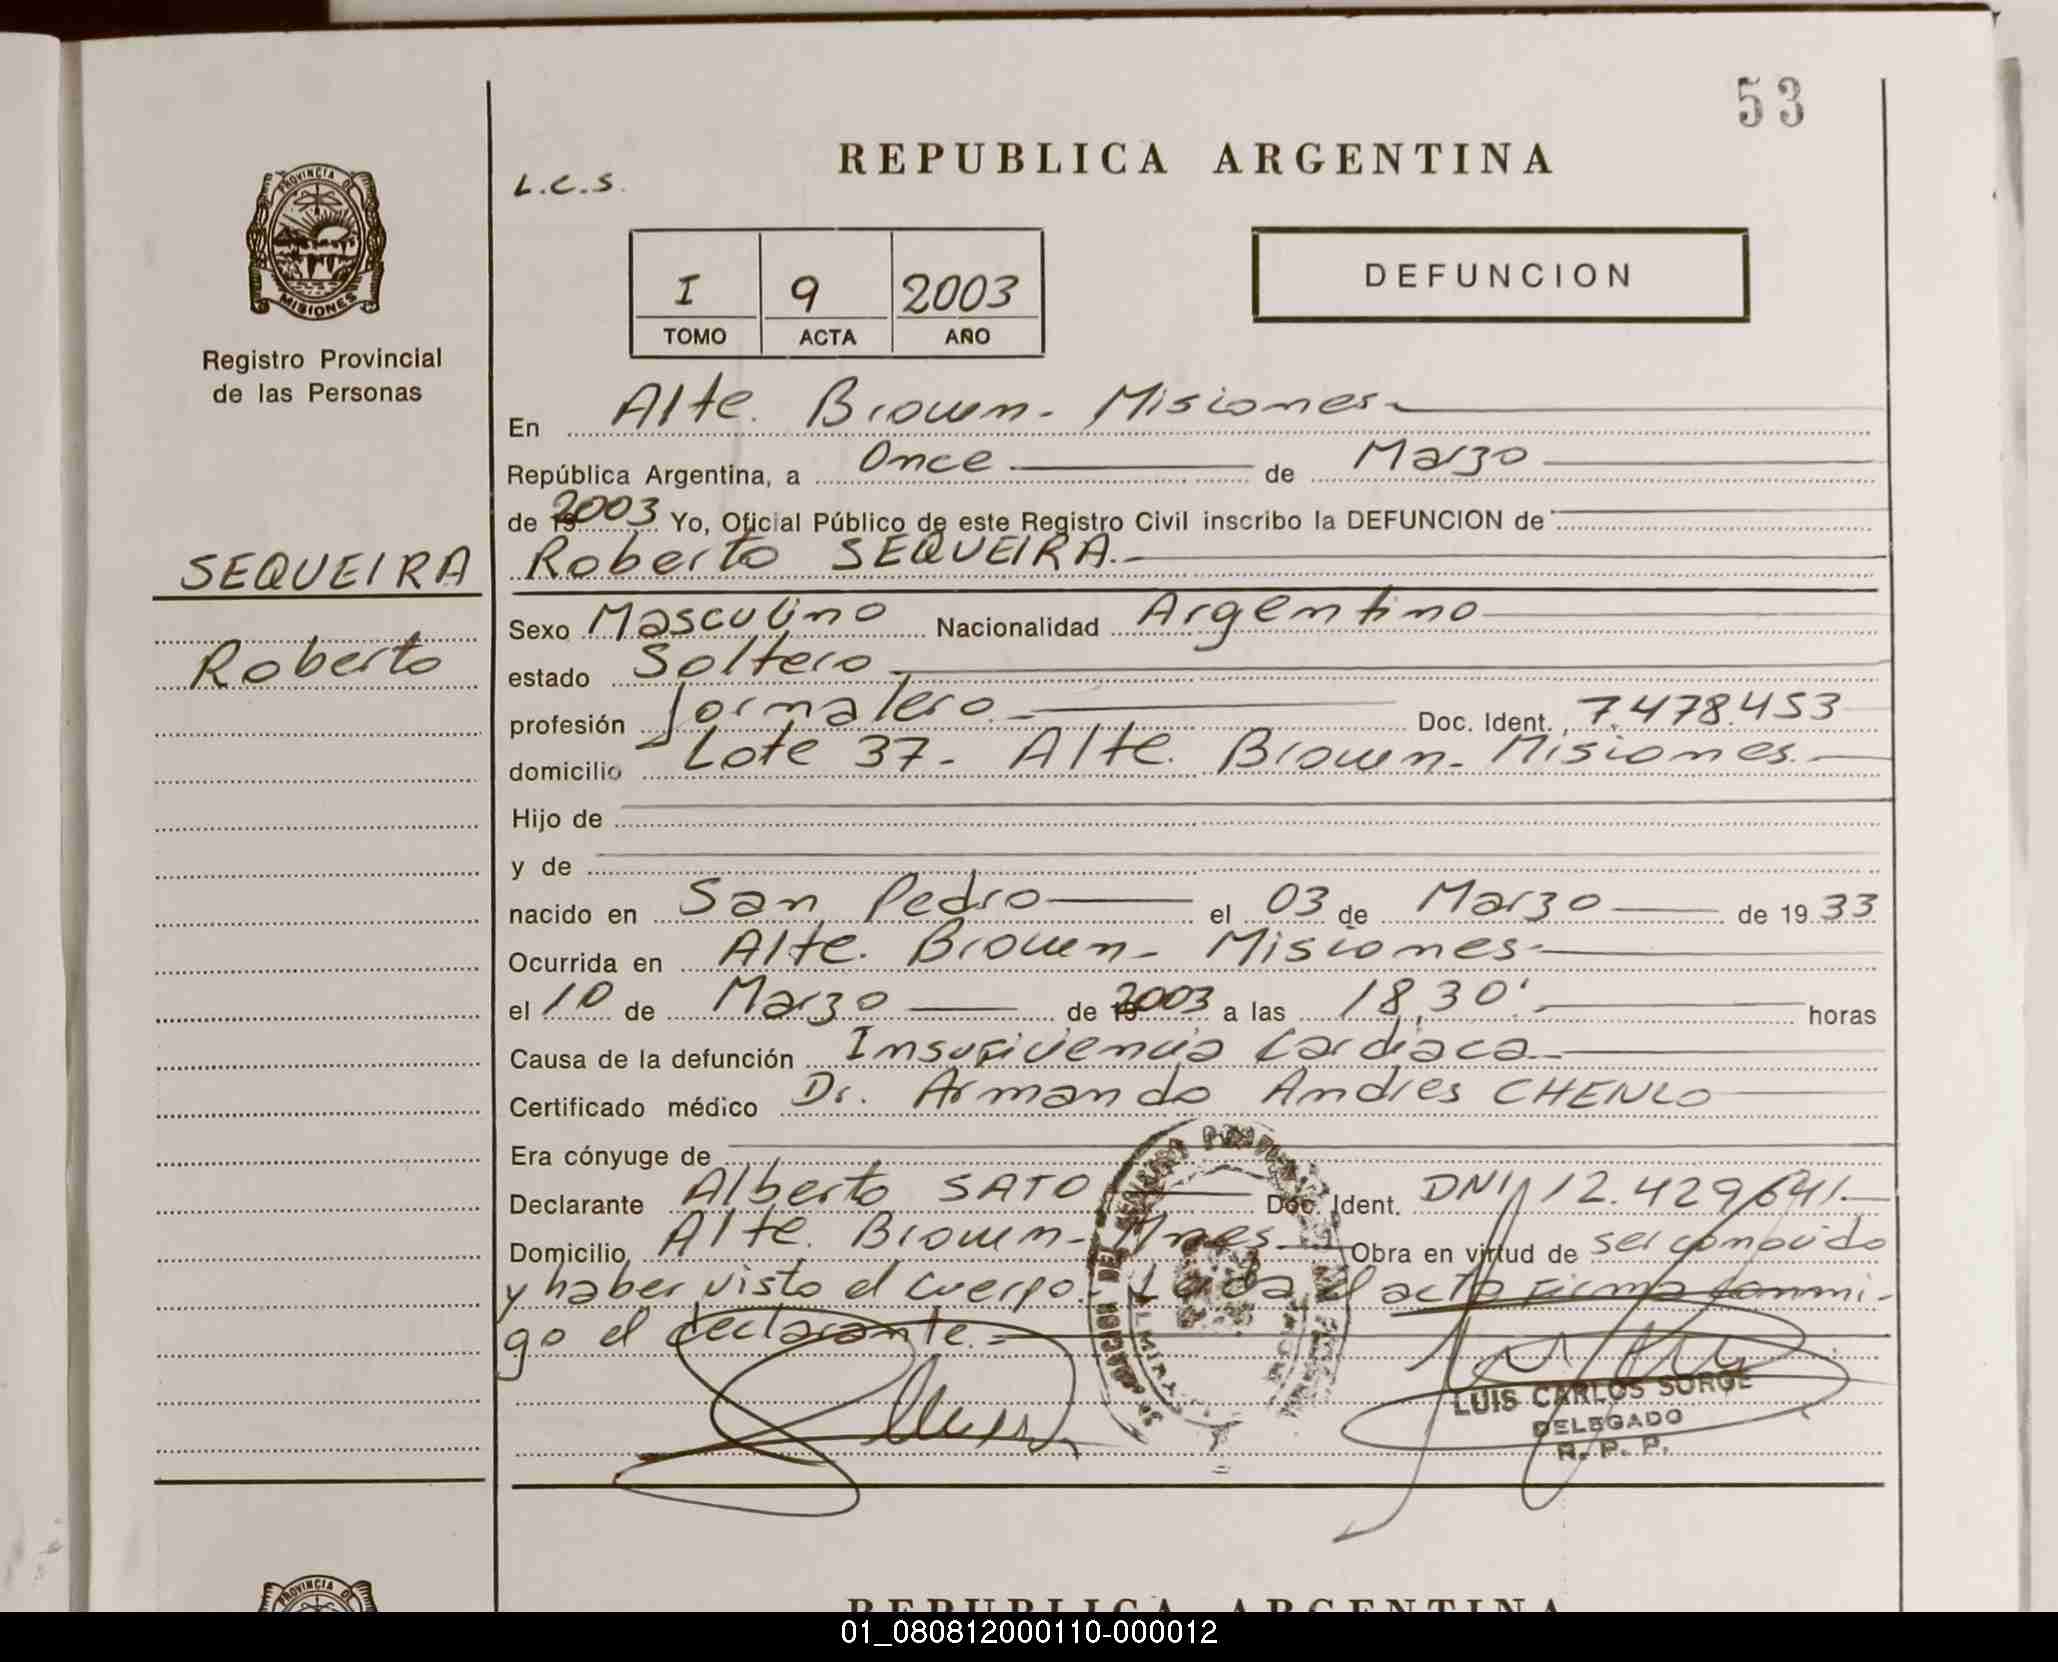 53
REPUBLICA ARGENTINA
L.C.S.
PROVINCIA DE
MISIONES
Registro Provincial
de las Personas
I 9 2003
TOMO ACTA AÑO
DEFUNCION
En Alte. Brown - Misiones
República Argentina, a Once de Marzo
de 2003 Yo, Oficial Público de este Registro Civil inscribo la DEFUNCION de
SEQUEIRA
Roberto
Roberto SEQUEIRA.
Sexo Masculino Nacionalidad Argentino
estado Soltero
profesión Jornalero Doc. Ident. 7.478.453
domicilio Lote 37 - Alte. Brown - Misiones.
Hijo de
y de
nacido en San Pedro el 03 de Marzo de 1933
Ocurrida en Alte. Brown - Misiones
el 10 de Marzo de 2003 a las 18,30' horas
Causa de la defunción Insuficiencia Cardiaca
Certificado médico Dr. Armando Andres CHENLO
Era cónyuge de
Declarante Alberto SATO Doc. Ident. DNI 12.429641
Domicilio Alte. Brown - Mnes Obra en virtud de ser conocido
y haber visto el cuerpo. - Leida el acta firma conmi-
go el declarante. =
LUIS CARLOS SORGE
DELEGADO
R. P. P.
PROVINCIA DE
REPUBLICA ARGENTINA
01_080812000110-000012